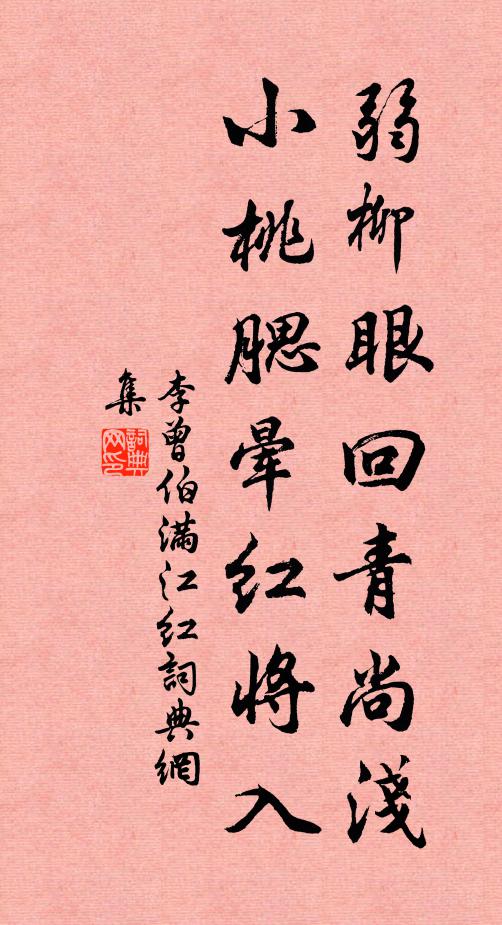 弱柳眼回青尚淺
小桃腮暈紅將入
李曾伯滿江紅詞典網
集
詞典
网印